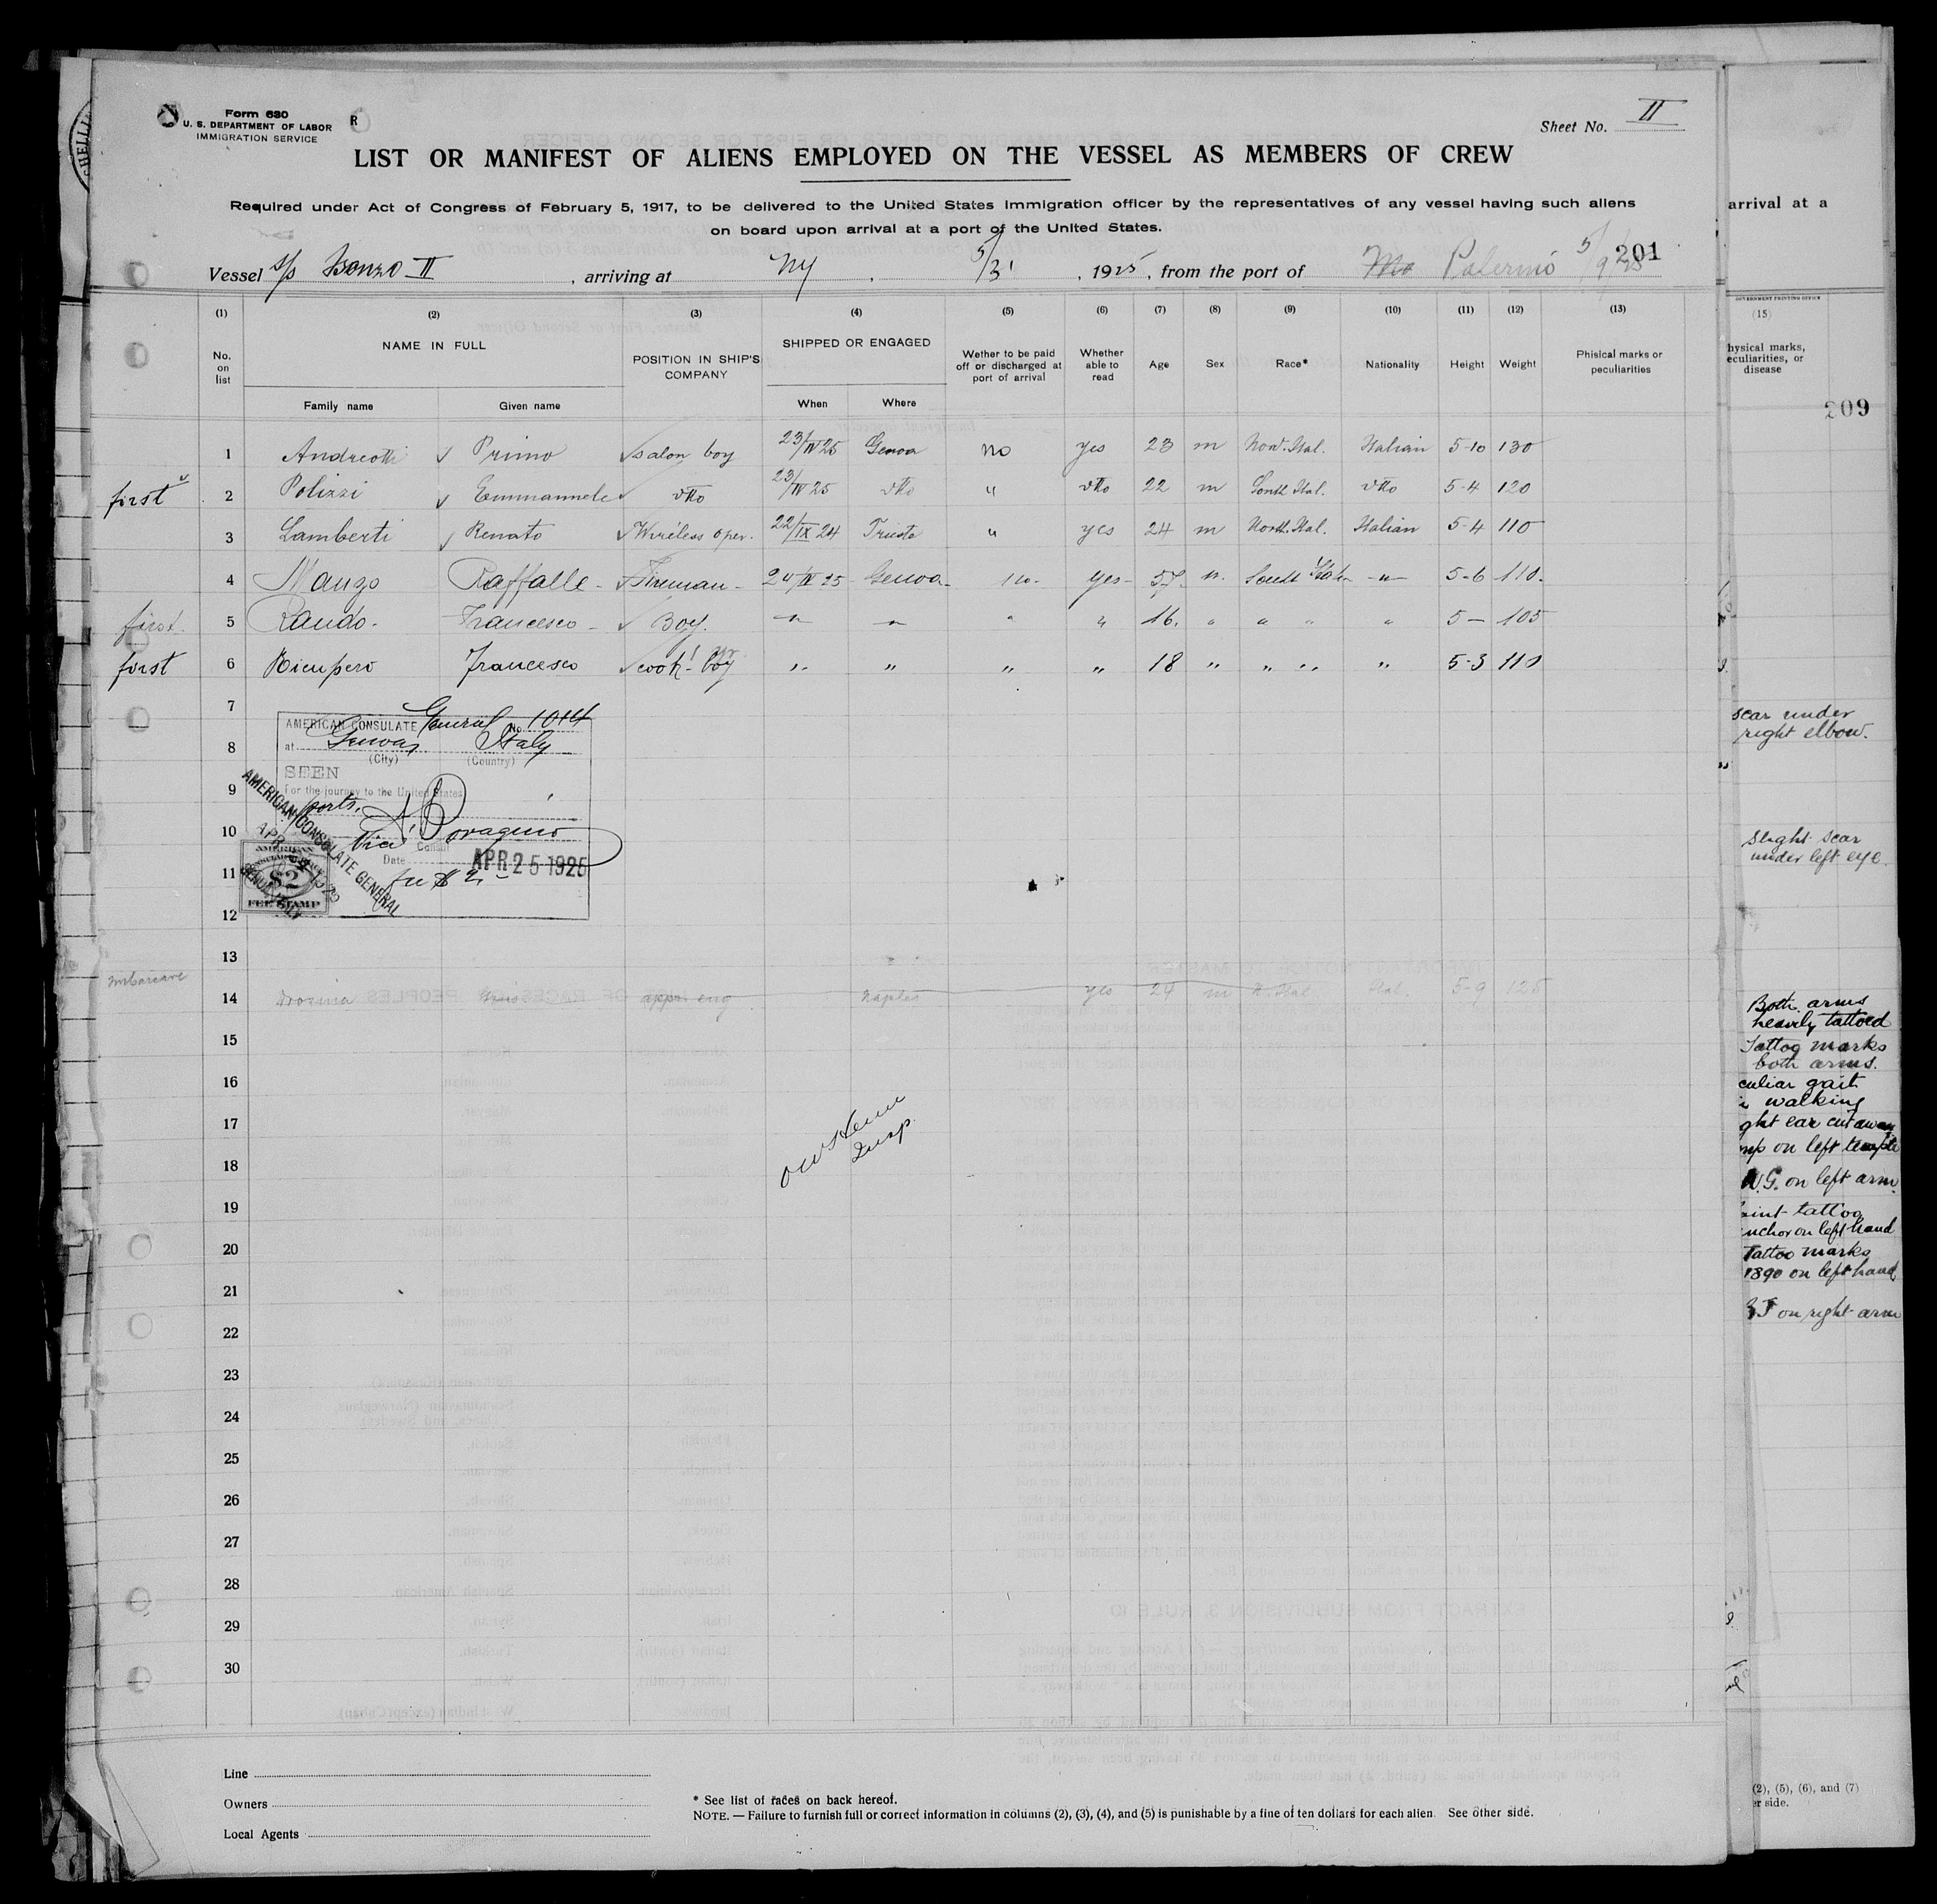 Form 680
U. S. DEPARTMENT OF LABOR
IMMIGRATION SERVICE
R
Sheet No. II
LIST OR MANIFEST OF ALIENS EMPLOYED ON THE VESSEL AS MEMBERS OF CREW
Required under Act of Congress of February 5, 1917, to be delivered to the United States immigration officer by the representatives of any vessel having such aliens
on board upon arrival at a port of the United States.
Vessel s/s Isonzo II, arriving at NY, 5/31, 1925, from the port of Palermo 5/9/25
201
(1) (2) (3) (4) (5) (6) (7) (8) (9) (10) (11) (12) (13)
No. on list
NAME IN FULL
Family name Given name
POSITION IN SHIP'S COMPANY
SHIPPED OR ENGAGED
When Where
Wether to be paid off or discharged at port of arrival
Whether able to read
Age Sex Race* Nationality Height Weight
Phisical marks or peculiarities
1 Andreotti Primo salon boy 23/IV 25 Genoa no yes 23 m Nord. Ital. Italian 5-10 130
first 2 Polizzi Emmannele dtto 23/IV 25 dtto " dtto 22 m South Ital. dtto 5-4 120
3 Lamberti Renato Wireless oper. 22/IX 24 Trieste " yes 24 m North. Ital. Italian 5-4 110
4 Manzo Raffalle - Fireman - 24/IV 25 Genoa - no - yes - 57 m. South Ital - " - 5-6 110.
first 5 Rando - Francesco - Boy. " " " " 16. " " " " 5 — 105
first 6 Ricupero Francesco cook' boy " " " " 18 " " " " 5-3 110
7
8
9
10
11
12
AMERICAN CONSULATE General No. 1014
at Genoa Italy
(City) (Country)
SEEN
For the journey to the United States
ports.
Vice Consul
Date APR 25 1925
fee $ 2.-
AMERICAN CONSULATE GENERAL
AMERICAN
$2
FEE STAMP
13
imbarcare
14 appr. eng Naples yes 24 m N. Ital. Ital. 5-9 125
15
16
17
18
Insp.
19
20
21
22
23
24
25
26
27
28
29
30
Line
Owners
Local Agents
* See list of races on back hereof.
NOTE. — Failure to furnish full or correct information in columns (2), (3), (4), and (5) is punishable by a fine of ten dollars for each alien. See other side.
arrival at a
GOVERNMENT PRINTING OFFICE
(15)
hysical marks,
eculiarities, or
disease
209
scar under
right elbow.
slight scar
under left eye.
Both arms
heavily tattoed
Tattoo marks
both arms.
culiar gait
walking
ght ear cut away
mp on left temple
W.G. on left arm
aint tattoo
nchor on left hand
Tattoo marks
1890 on left hand
on right arm
(2), (5), (6), and (7)
er side.